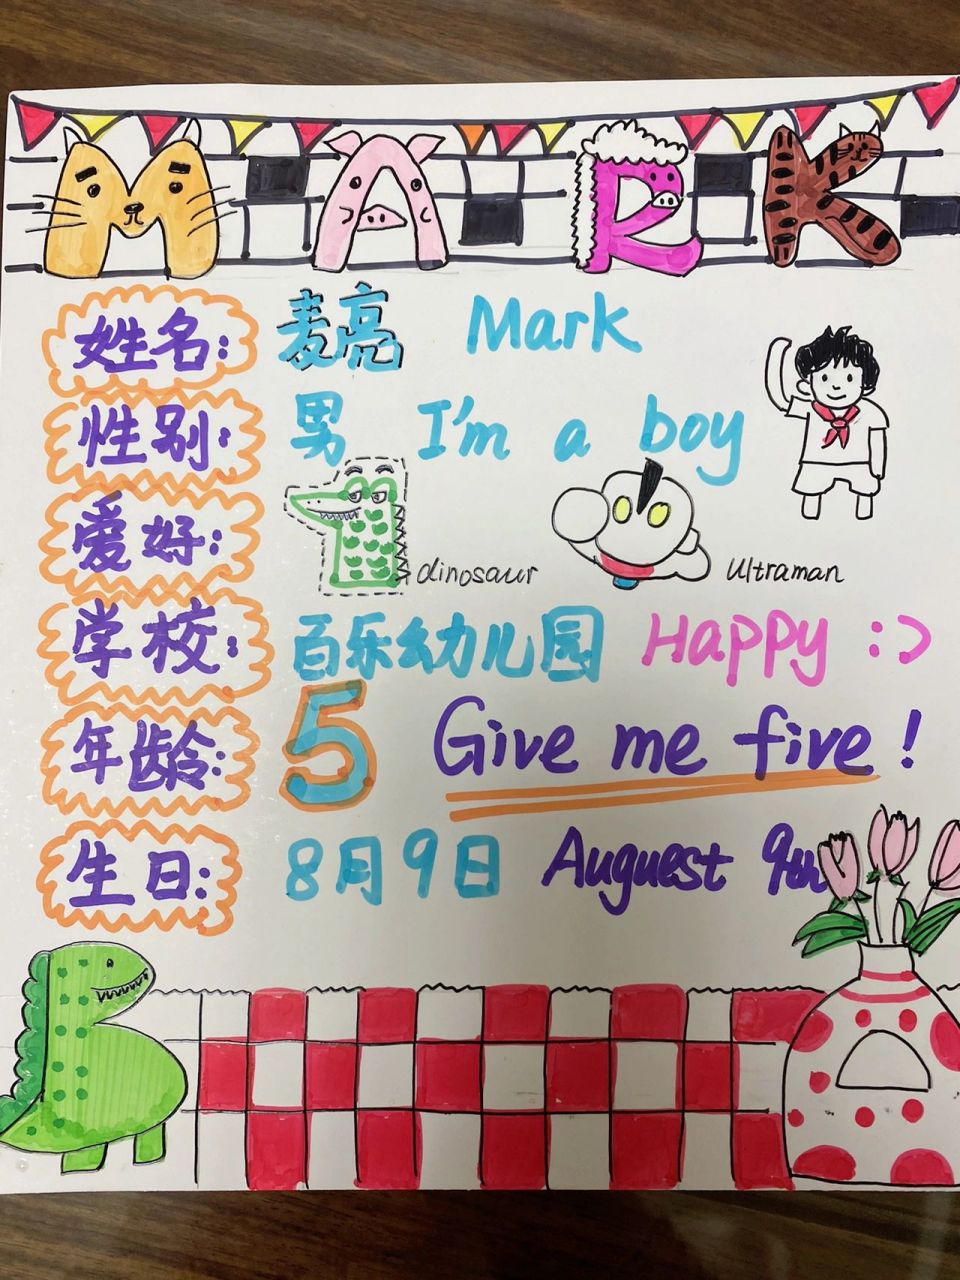 MARK
姓名: 麦亮 Mark
性别: 男 I'm a boy
爱好: dinosaur ultraman
学校: 百乐幼儿园 Happy :)
年龄: 5 Give me five!
生日: 8月9日 Auguest 9th